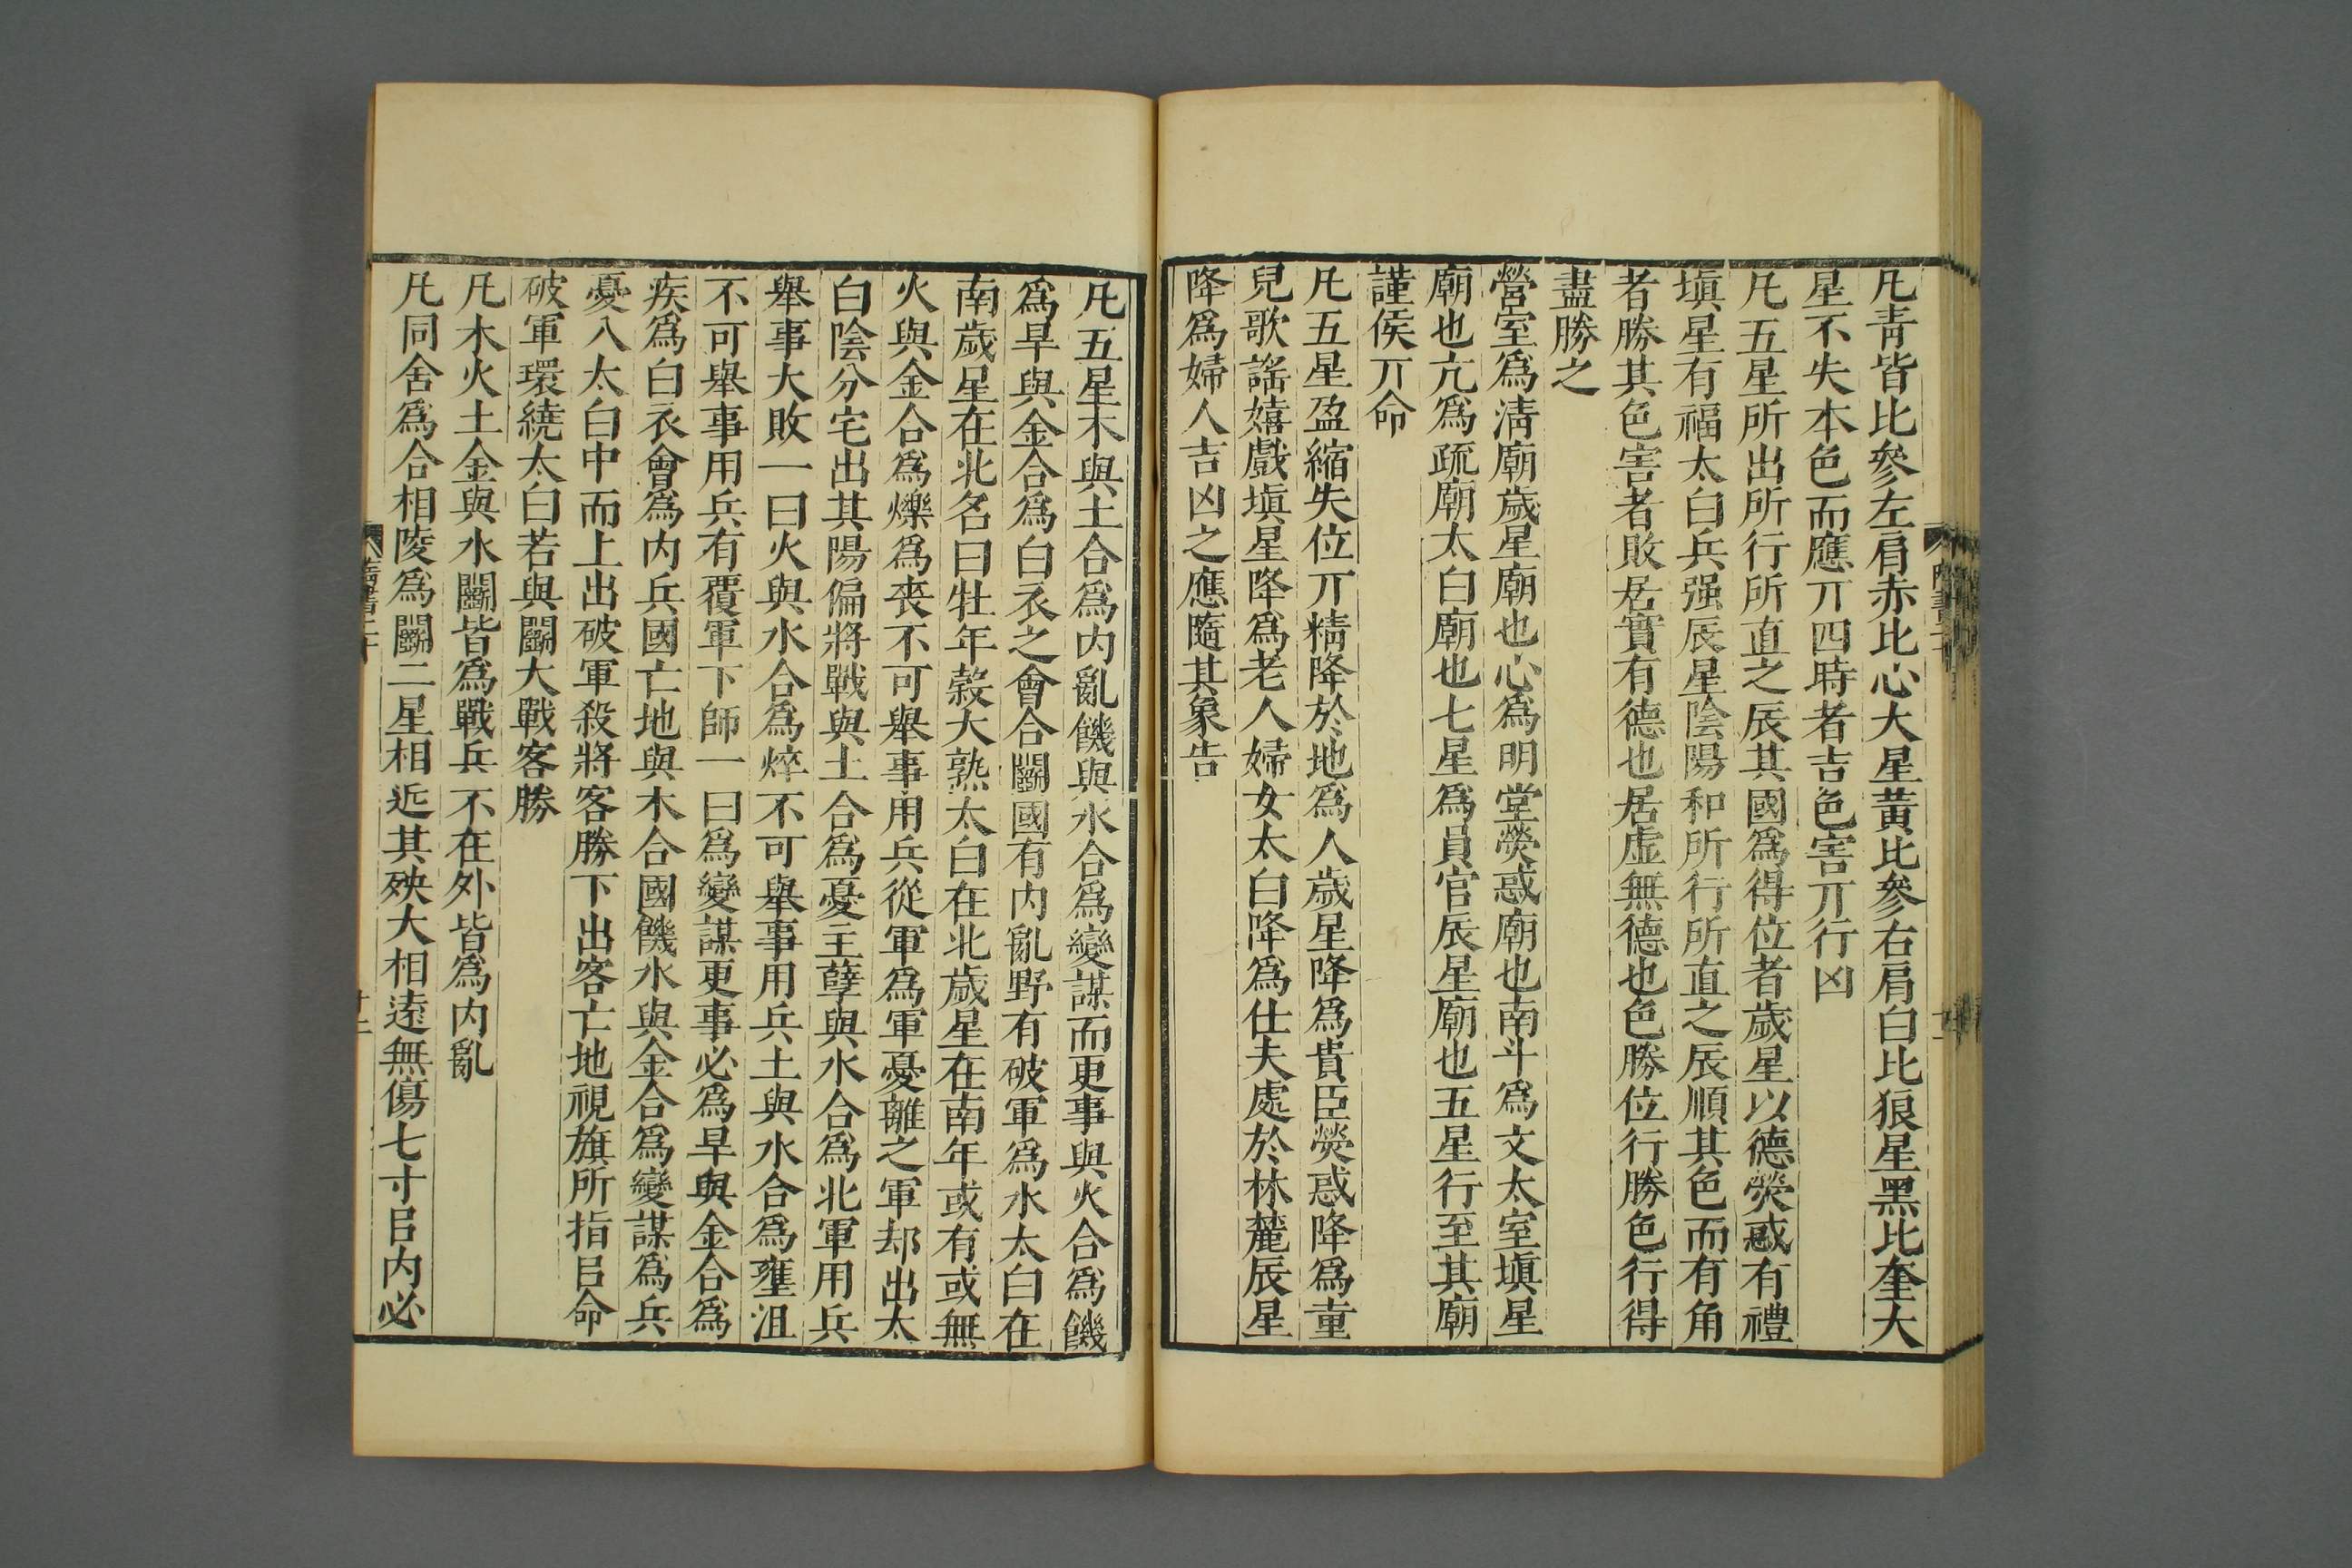 凡青皆比參左肩赤比心大星黃比參右肩白比狼星黑比奎大
星不失本色而應丌四時者吉色害丌行凶
凡五星所出所行所直之辰其國爲得位者歲星以德熒惑有禮
塡星有福太白兵强辰星陰陽和所行所直之辰順其色而有角
者勝其色害者敗居實有德也居虛無德也色勝位行勝色行得
盡勝之
營室爲淸廟歲星廟也心爲明堂熒惑廟也南斗爲文太室塡星
廟也亢爲疏廟太白廟也七星爲員官辰星廟也五星行至其廟
謹侯丌命
凡五星盈縮失位丌精降於地爲人歲星降爲貴臣熒惑降爲童
兒歌謠嬉戲塡星降爲老人婦女太白降爲仕夫處於林麓辰星
降爲婦人吉凶之應隨其象告
凡五星木與土合爲內亂饑與水合爲變謀而更事與火合爲饑
爲旱與金合爲白衣之會合鬭國有內亂野有破軍爲水太白在
南歲星在北名曰牡年穀大熟太白在北歲星在南年或有或無
火與金合爲爍爲喪不可舉事用兵從軍爲軍憂離之軍却出太
白陰分宅出其陽偏將戰與土合爲憂主孽與水合爲北軍用兵
舉事大敗一曰火與水合爲焠不可舉事用兵土與水合爲壅沮
不可舉事用兵有覆軍下師一曰爲變謀更事必爲旱與金合爲
疾爲白衣會爲內兵國亡地與木合國饑水與金合爲變謀爲兵
憂入太白中而上出破軍殺將客勝下出客亡地視旗所指㠯命
破軍環繞太白若與鬭大戰客勝
凡木火土金與水鬭皆爲戰兵不在外皆爲內亂
凡同舍爲合相陵爲鬭二星相近其殃大相遠無傷七寸㠯內必
隋書二十
十二